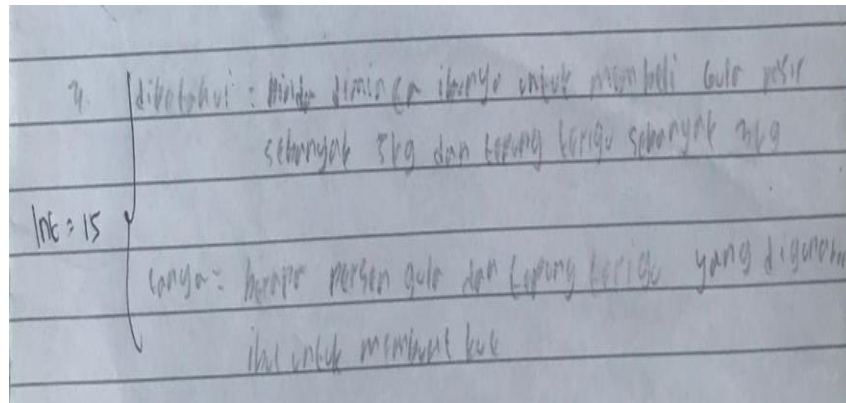 diketahui : Minda diminta ibunya untuk membeli Gula pasir
sebanyak 5kg dan tepung terigu sebanyak 3kg
Int = 15
tanya = berapa persen gula dan tepung terigu yang digunakan
ibu untuk membuat kue